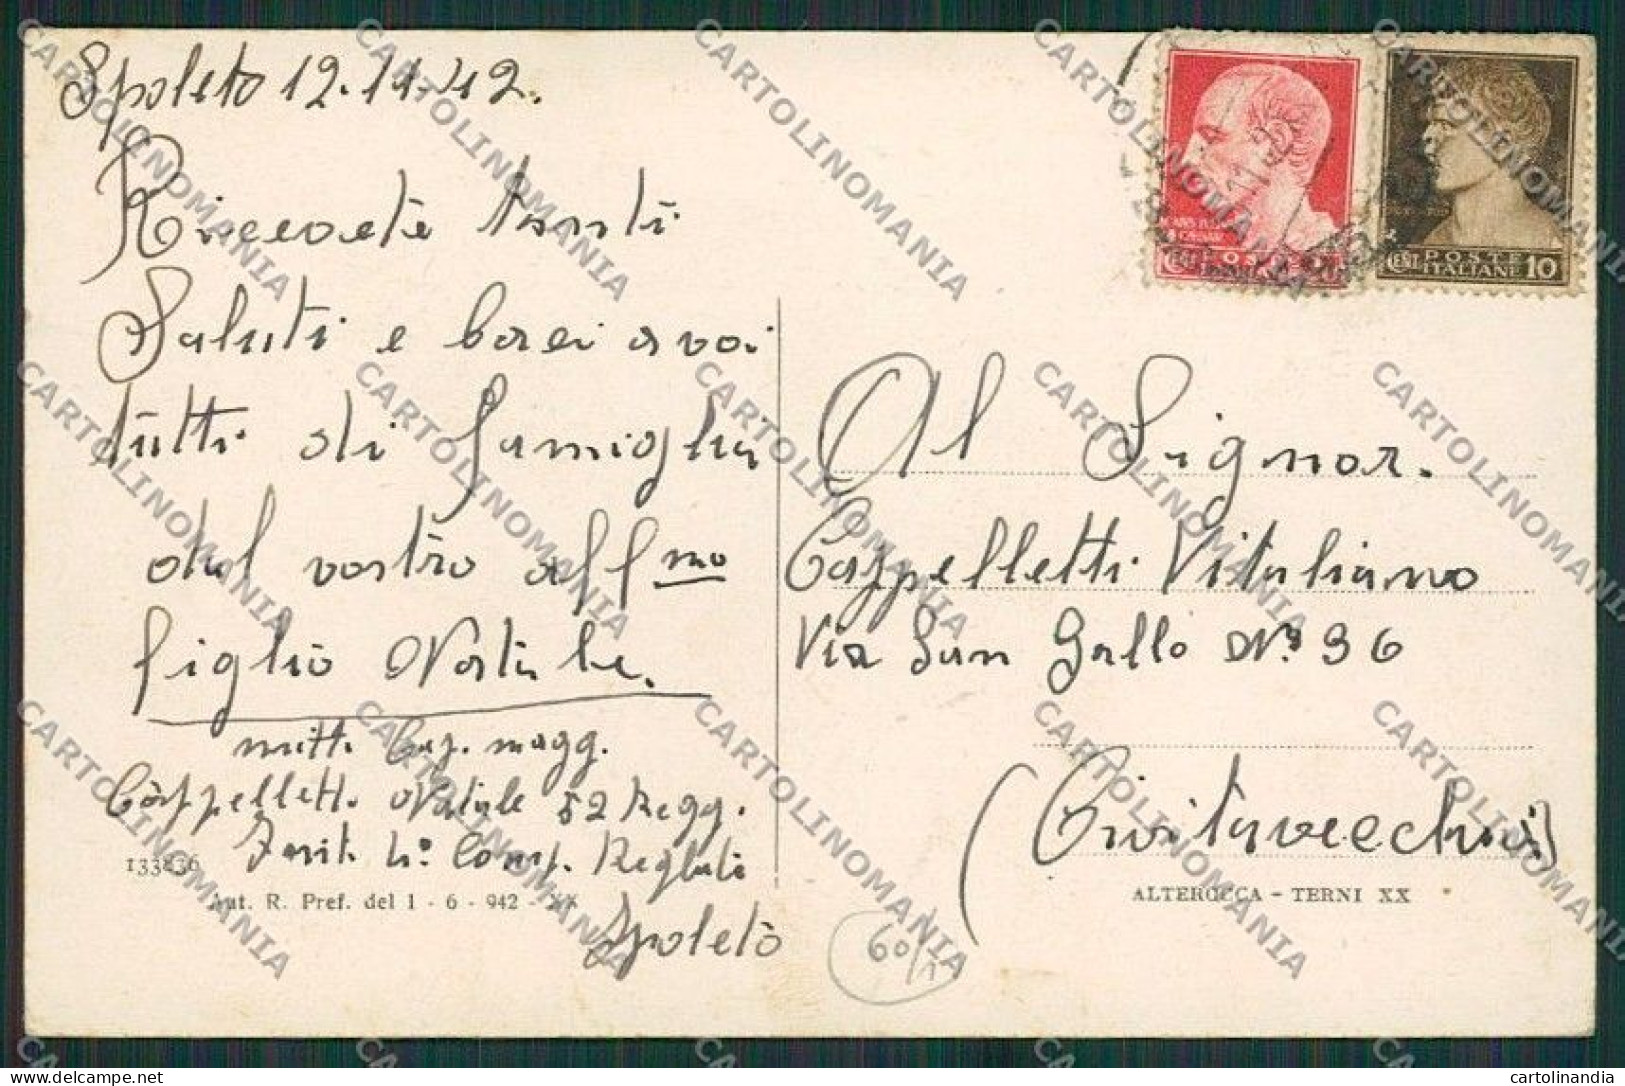 Spoleto 12.11.42.
Ricevete tanti
Saluti e baci a voi
tutti di famiglia
dal vostro aff mo
figlio Natale.
mitt. Cap. magg.
Cappelletti Natale 52 Regg.
Fant. 4ª Comp. Regluti
Spoleto
133856
Aut. R. Pref. del 1 - 6 - 942 - XX
POSTE
CENT POSTE ITALIANE 10
Al Signor.
Cappelletti Vitaliano
Via San Gallo Nº 36
(Civitavecchia)
ALTEROCCA - TERNI XX
60/1
CARTOLINOMANIA
delcampe.net
cartolinandia